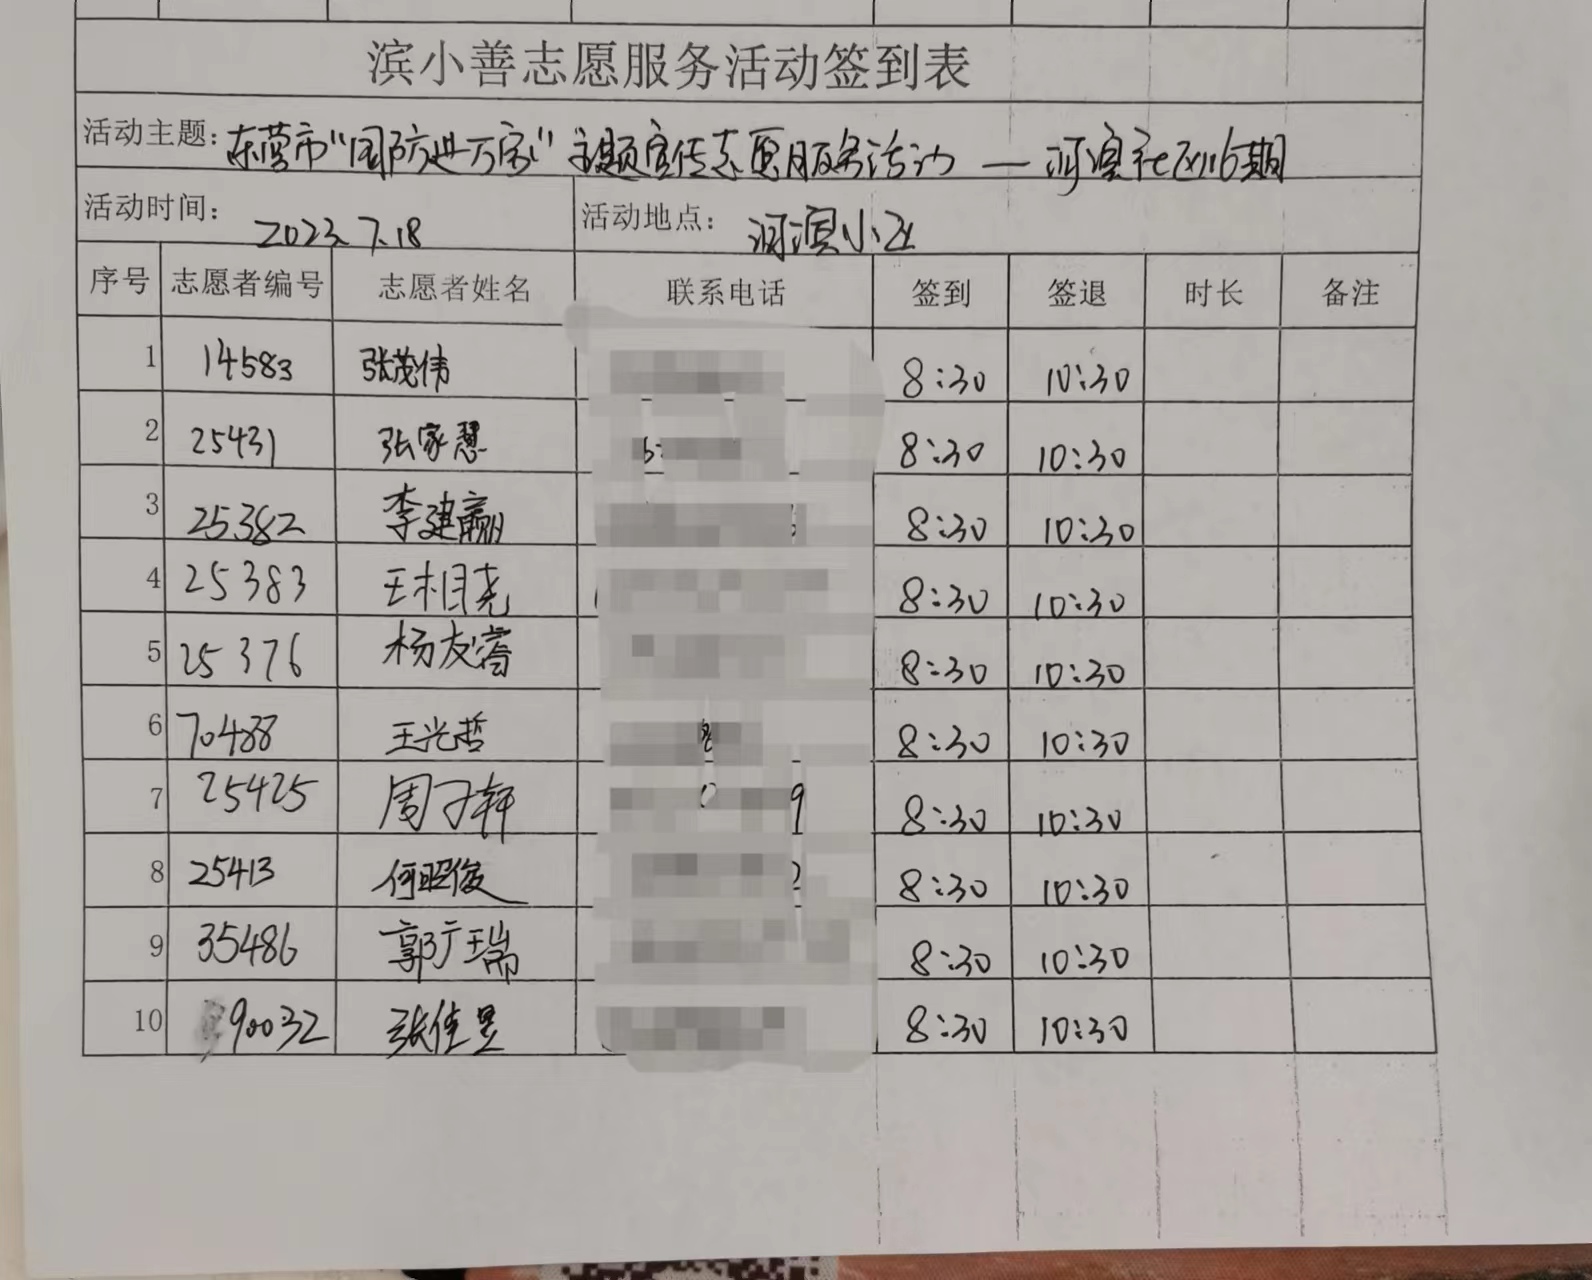 滨小善志愿服务活动签到表
活动主题：东营市“国防进万家”主题宣传志愿服务活动 — 河滨社区116期
活动时间： 2023.7.18 活动地点： 河滨小区
序号 志愿者编号 志愿者姓名 联系电话 签到 签退 时长 备注
1 14583 张茂伟 8:30 10:30
2 25431 张家慧 8:30 10:30
3 25382 李建赢 8:30 10:30
4 25383 王相尧 8:30 10:30
5 25376 杨友睿 8:30 10:30
6 70488 王光哲 8:30 10:30
7 25425 周子轩 9 8:30 10:30
8 25413 何昭俊 2 8:30 10:30
9 35486 郭广瑞 8:30 10:30
10 90032 张佳昱 8:30 10:30